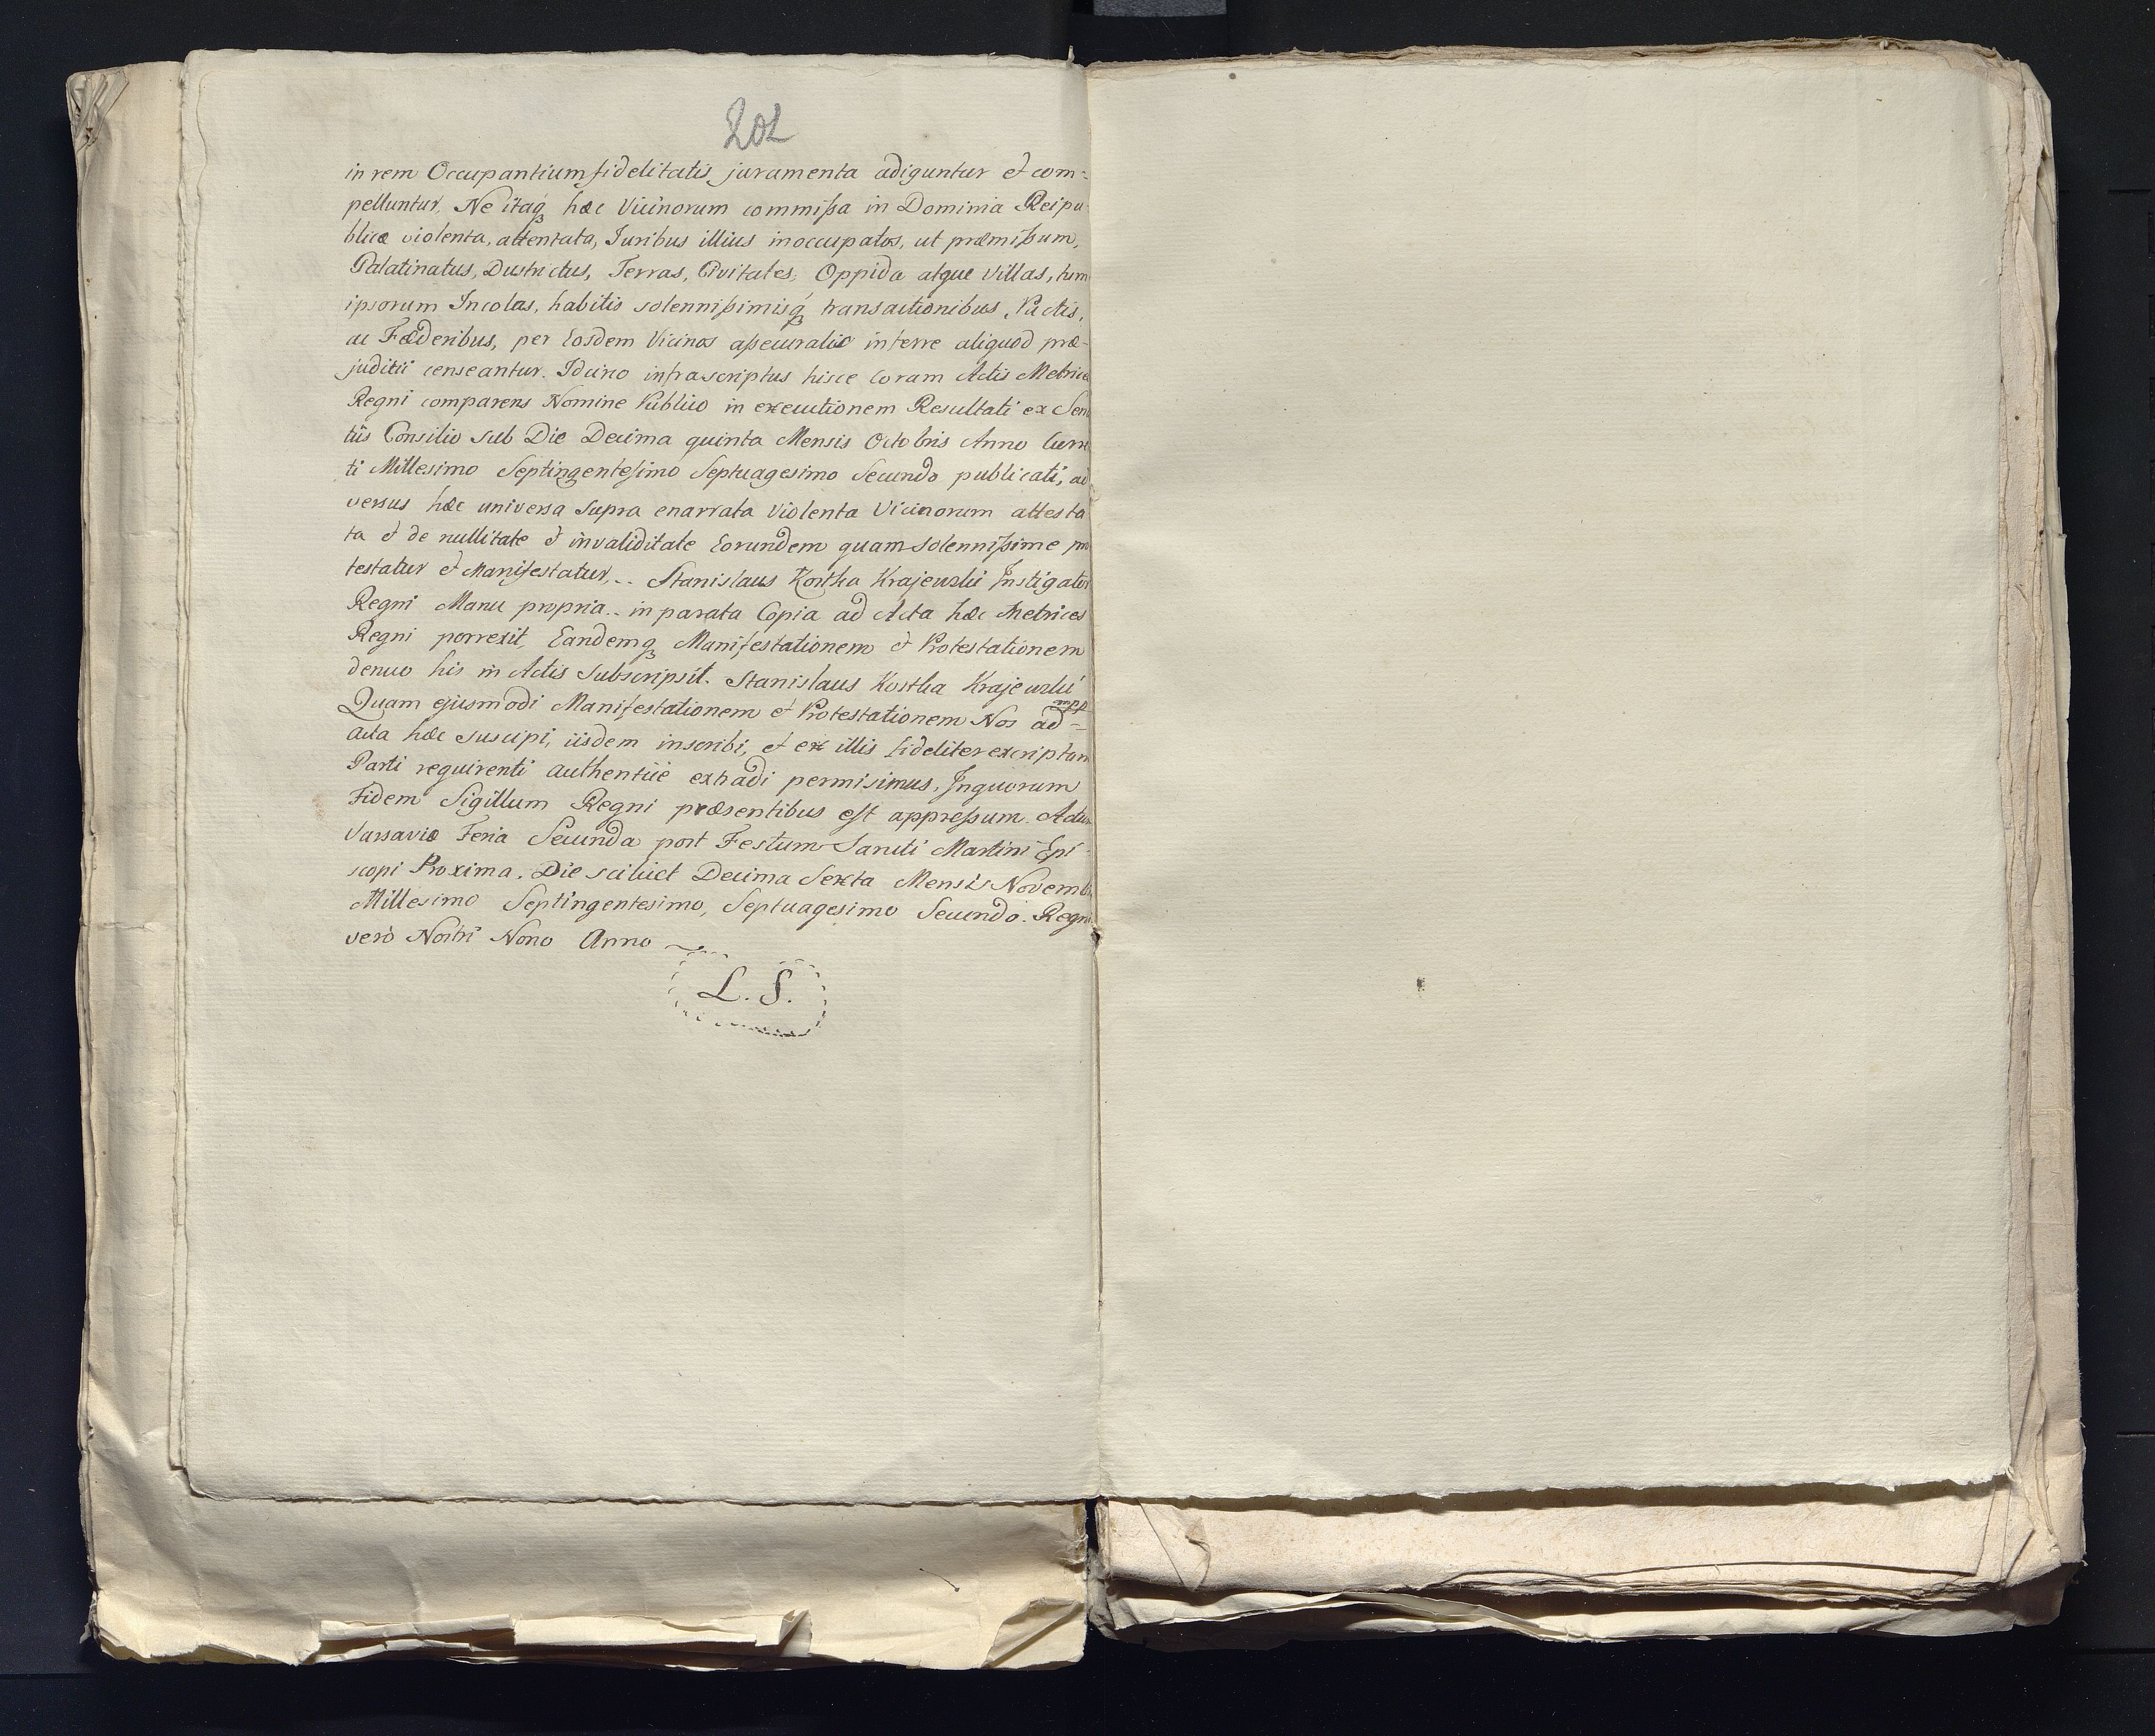 202
in rem Occupantium fidelitatis juramenta adiguntur et com=
pelluntur. Ne itaq₃ hæc Vicinorum commissa in Dominia Reipu
blicæ violenta, attentata, Juribus illius in occupatos, ut præmissum,
Palatinatus, Districtus, Terras, Civitates, Oppida atque Villas, tum
ipsorum Incolas, habitis solennissimisq₃ transactionibus, Pactis,
ac Fæderibus, per Eosdem Vicinos assecuratis inferre aliquod præ-
juditii censeantur. Idcirco infrascriptus hisce Coram Actis Metrices
Regni comparens Nomine Publico in executionem Resultati ex Sena
tûs Consilio sub Die Decima quinta Mensis Octobris Anno Curren
ti Millesimo Septingentesimo Septuagesimo Secundo publicati, ad
versus hæc universa supra enarrata Violenta Vicinorum attesta
ta et de nullitate et invaliditate Eorundem quam solennissime pro
testatur et Manifestatur. -- Stanislaus Kostka Krajewski Instigator
Regni Manu propria. - in parata Copia ad Acta hæc Metrices
Regni porrexit, Eandemq₃ Manifestationem et Protestationem
denuo his in Actis Subscripsit. Stanislaus Kostka Krajewski
mpp
Quam ejusmodi Manifestationem et Protestationem Nos ad=
acta hæc suscipi, iisdem inscribi, et ex illis fideliter excriptam
Parti requirenti authenticè extradi permisimus. In quorum
Fidem Sigillum Regni præsentibus est appressum. Actum
Varsaviæ Feria Secunda post Festum Sancti Martini Epi
scopi Proxima. Die scilicet Decima Sexta Mensis Novembris
Millesimo Septingentesimo, Septuagesimo Secundo. Regni
verò Nostri Nono Anno
L. S.